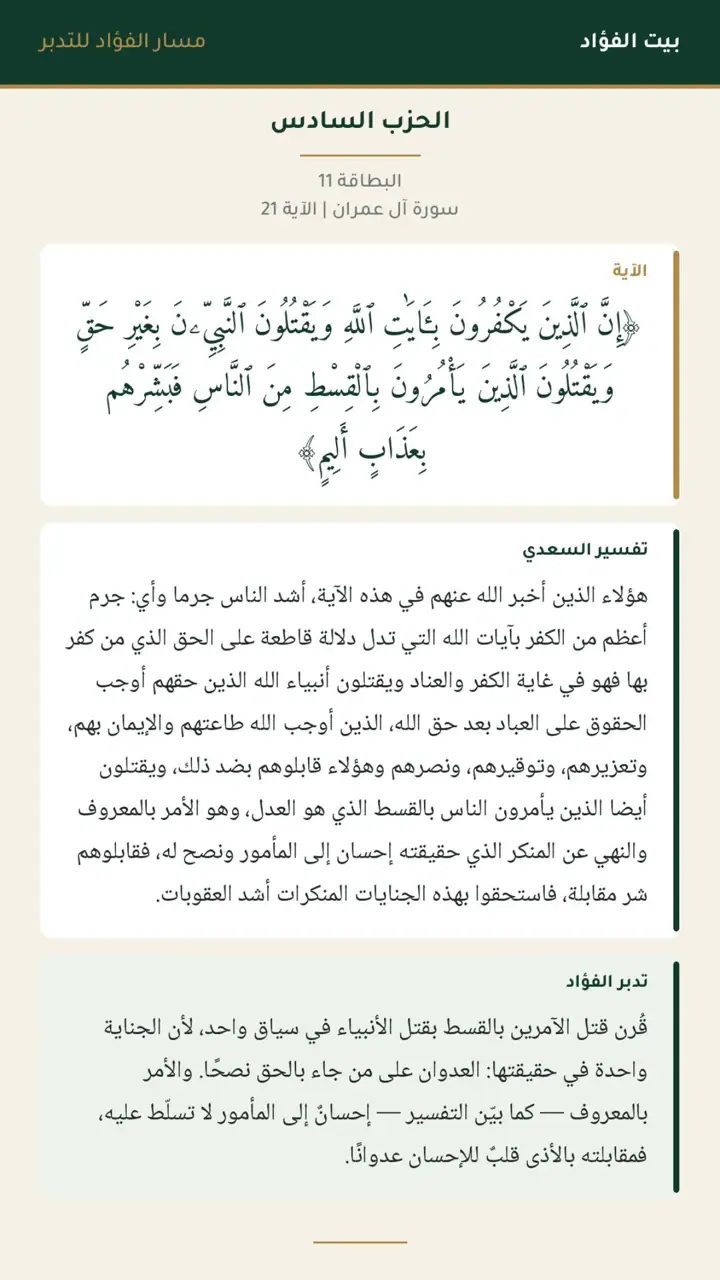 بيت الفؤاد
مسار الفؤاد للتدبر
الحزب السادس
البطاقة 11
سورة آل عمران | الآية 21
الآية
﴿إِنَّ ٱلَّذِينَ يَكْفُرُونَ بِـَٔايَـٰتِ ٱللَّهِ وَيَقْتُلُونَ ٱلنَّبِيِّـۧنَ بِغَيْرِ حَقٍّ
وَيَقْتُلُونَ ٱلَّذِينَ يَأْمُرُونَ بِٱلْقِسْطِ مِنَ ٱلنَّاسِ فَبَشِّرْهُم
بِعَذَابٍ أَلِيمٍ﴾
تفسير السعدي
هؤلاء الذين أخبر الله عنهم في هذه الآية، أشد الناس جرما وأي: جرم
أعظم من الكفر بآيات الله التي تدل دلالة قاطعة على الحق الذي من كفر
بها فهو في غاية الكفر والعناد ويقتلون أنبياء الله الذين حقهم أوجب
الحقوق على العباد بعد حق الله، الذين أوجب الله طاعتهم والإيمان بهم،
وتعزيرهم، وتوقيرهم، ونصرهم وهؤلاء قابلوهم بضد ذلك، ويقتلون
أيضا الذين يأمرون الناس بالقسط الذي هو العدل، وهو الأمر بالمعروف
والنهي عن المنكر الذي حقيقته إحسان إلى المأمور ونصح له، فقابلوهم
شر مقابلة، فاستحقوا بهذه الجنايات المنكرات أشد العقوبات.
تدبر الفؤاد
قُرن قتل الآمرين بالقسط بقتل الأنبياء في سياق واحد، لأن الجناية
واحدة في حقيقتها: العدوان على من جاء بالحق نصحًا. والأمر
بالمعروف — كما بيّن التفسير — إحسانٌ إلى المأمور لا تسلّط عليه،
فمقابلته بالأذى قلبٌ للإحسان عدوانًا.